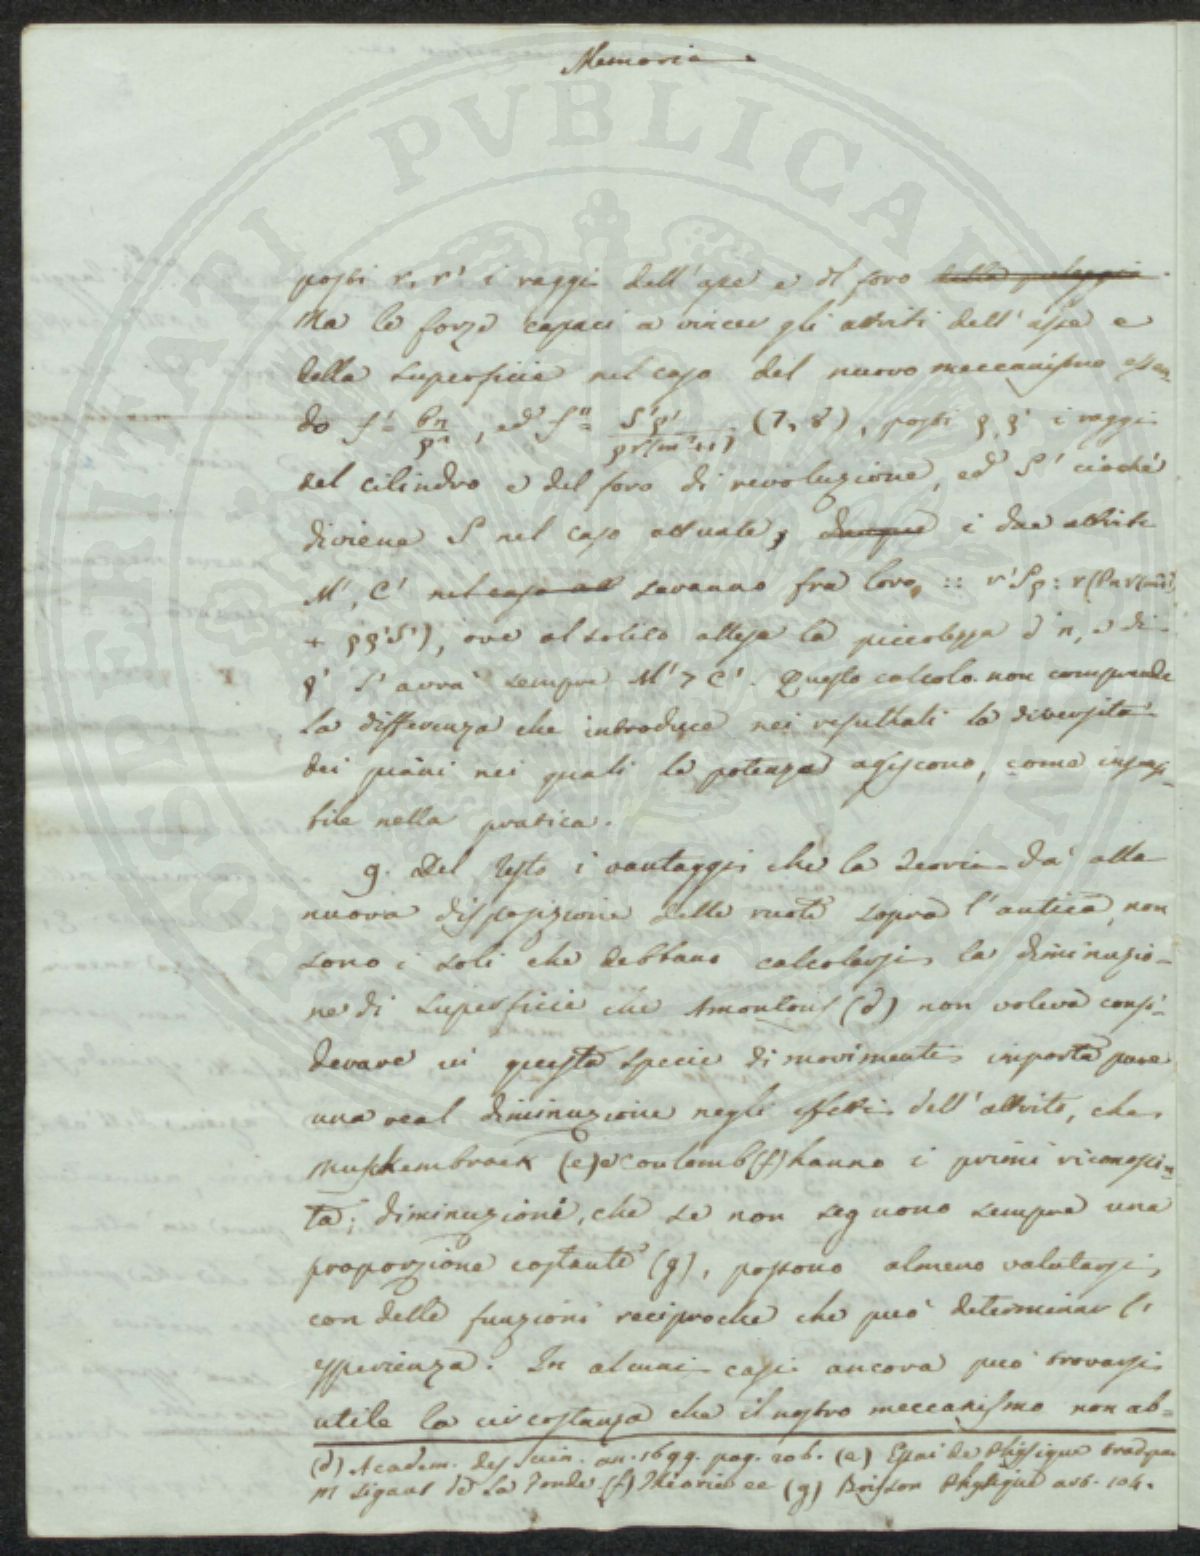 Memoria
posti r, r' i raggi dell'asse e del foro della puleggia.
Ma le forze capaci a vincer gli attriti dell'asse e
della superficie nel caso del nuovo meccanismo essen-
do f' = , ed f'' = (7, 8), posti ρ, ρ' i raggi
del cilindro e del foro di revoluzione, ed S' ciochè
diviene S nel caso attuale, dunque i due attriti
M', C' nel caso saranno fra loro :: r'Sρ : r
+ ρρ'S'), ove al solito attesa la piccolezza d'n, e di
ρ' s'avrà sempre M' > C'. Questo calcolo non comprende
la differenza che introduce nei resultati la diversità
dei piani nei quali le potenze agiscono, come insensi-
bile nella pratica.
9. Del resto i vantaggi che la Teoria dà alla
nuova disposizione delle ruote sopra l'antica, non
sono i soli che debbano calcolarsi, la diminuzio-
ne di superficie che Amontons (d) non voleva consi-
derare in questa specie di movimenti importa pure
una real diminuzione negli effetti dell'attrito, che
Muskembroek (e) e Coulomb (f) hanno i primi riconosciu-
ta; diminuzione, che se non seguono sempre una
proporzione costante (g), possono almeno valutarsi
con delle funzioni reciproche che può determinar l'
esperienza. In alcuni casi ancora può trovarsi
utile la circostanza che il nostro meccanismo non ab-
(d) Academ. des Scien. an. 1699. pag. 206. (e) Essai de Physique trad. par
M Sigaut de La Fonde (f) Théorie ec (g) Brisson Physique art. 104.
PROSPERITATI PUBLICAE